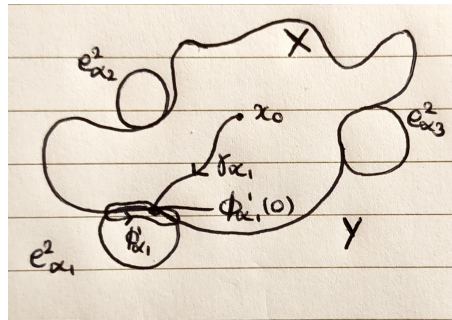 X
e²_α₂
x₀
e²_α₃
γ_α₁
ϕ'_α₁(0)
ϕ'_α₁
Y
e²_α₁